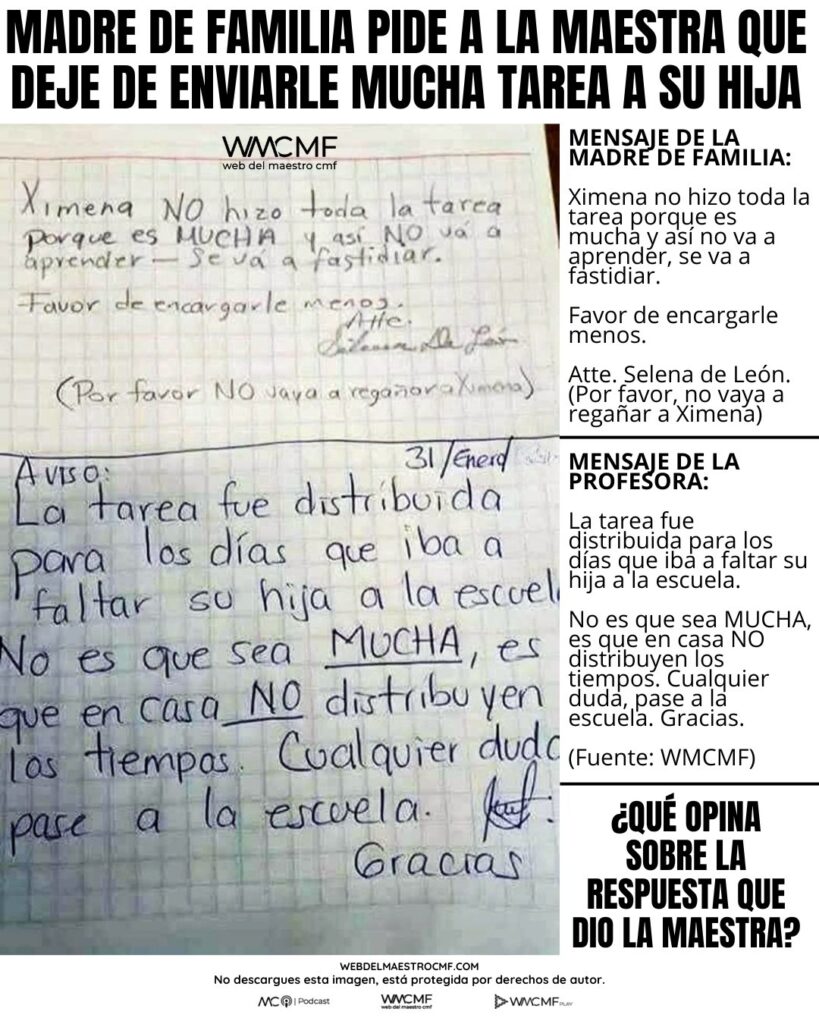 MADRE DE FAMILIA PIDE A LA MAESTRA QUE
DEJE DE ENVIARLE MUCHA TAREA A SU HIJA
WMCMF
web del maestro cmf
Ximena NO hizo toda la tarea
porque es MUCHA y así NO vá a
aprender — Se vá a fastidiar.
Favor de encargarle menos.
Atte.
Selena De León
(Por favor NO vaya a regañar a Ximena)
31/Enero
Aviso:
La tarea fue distribuida
para los días que iba a
faltar su hija a la escuel
No es que sea MUCHA, es
que en casa NO distribuyen
los tiempos. Cualquier duda
pase a la escuela.
Gracias
MENSAJE DE LA
MADRE DE FAMILIA:
Ximena no hizo toda la
tarea porque es
mucha y así no va a
aprender, se va a
fastidiar.
Favor de encargarle
menos.
Atte. Selena de León.
(Por favor, no vaya a
regañar a Ximena)
MENSAJE DE LA
PROFESORA:
La tarea fue
distribuida para los
días que iba a faltar su
hija a la escuela.
No es que sea MUCHA,
es que en casa NO
distribuyen los
tiempos. Cualquier
duda, pase a la
escuela. Gracias.
(Fuente: WMCMF)
¿QUÉ OPINA
SOBRE LA
RESPUESTA QUE
DIO LA MAESTRA?
WEBDELMAESTROCMF.COM
No descargues esta imagen, está protegida por derechos de autor.
MC | Podcast
WMCMF
web del maestro cmf
WMCMF PLAY